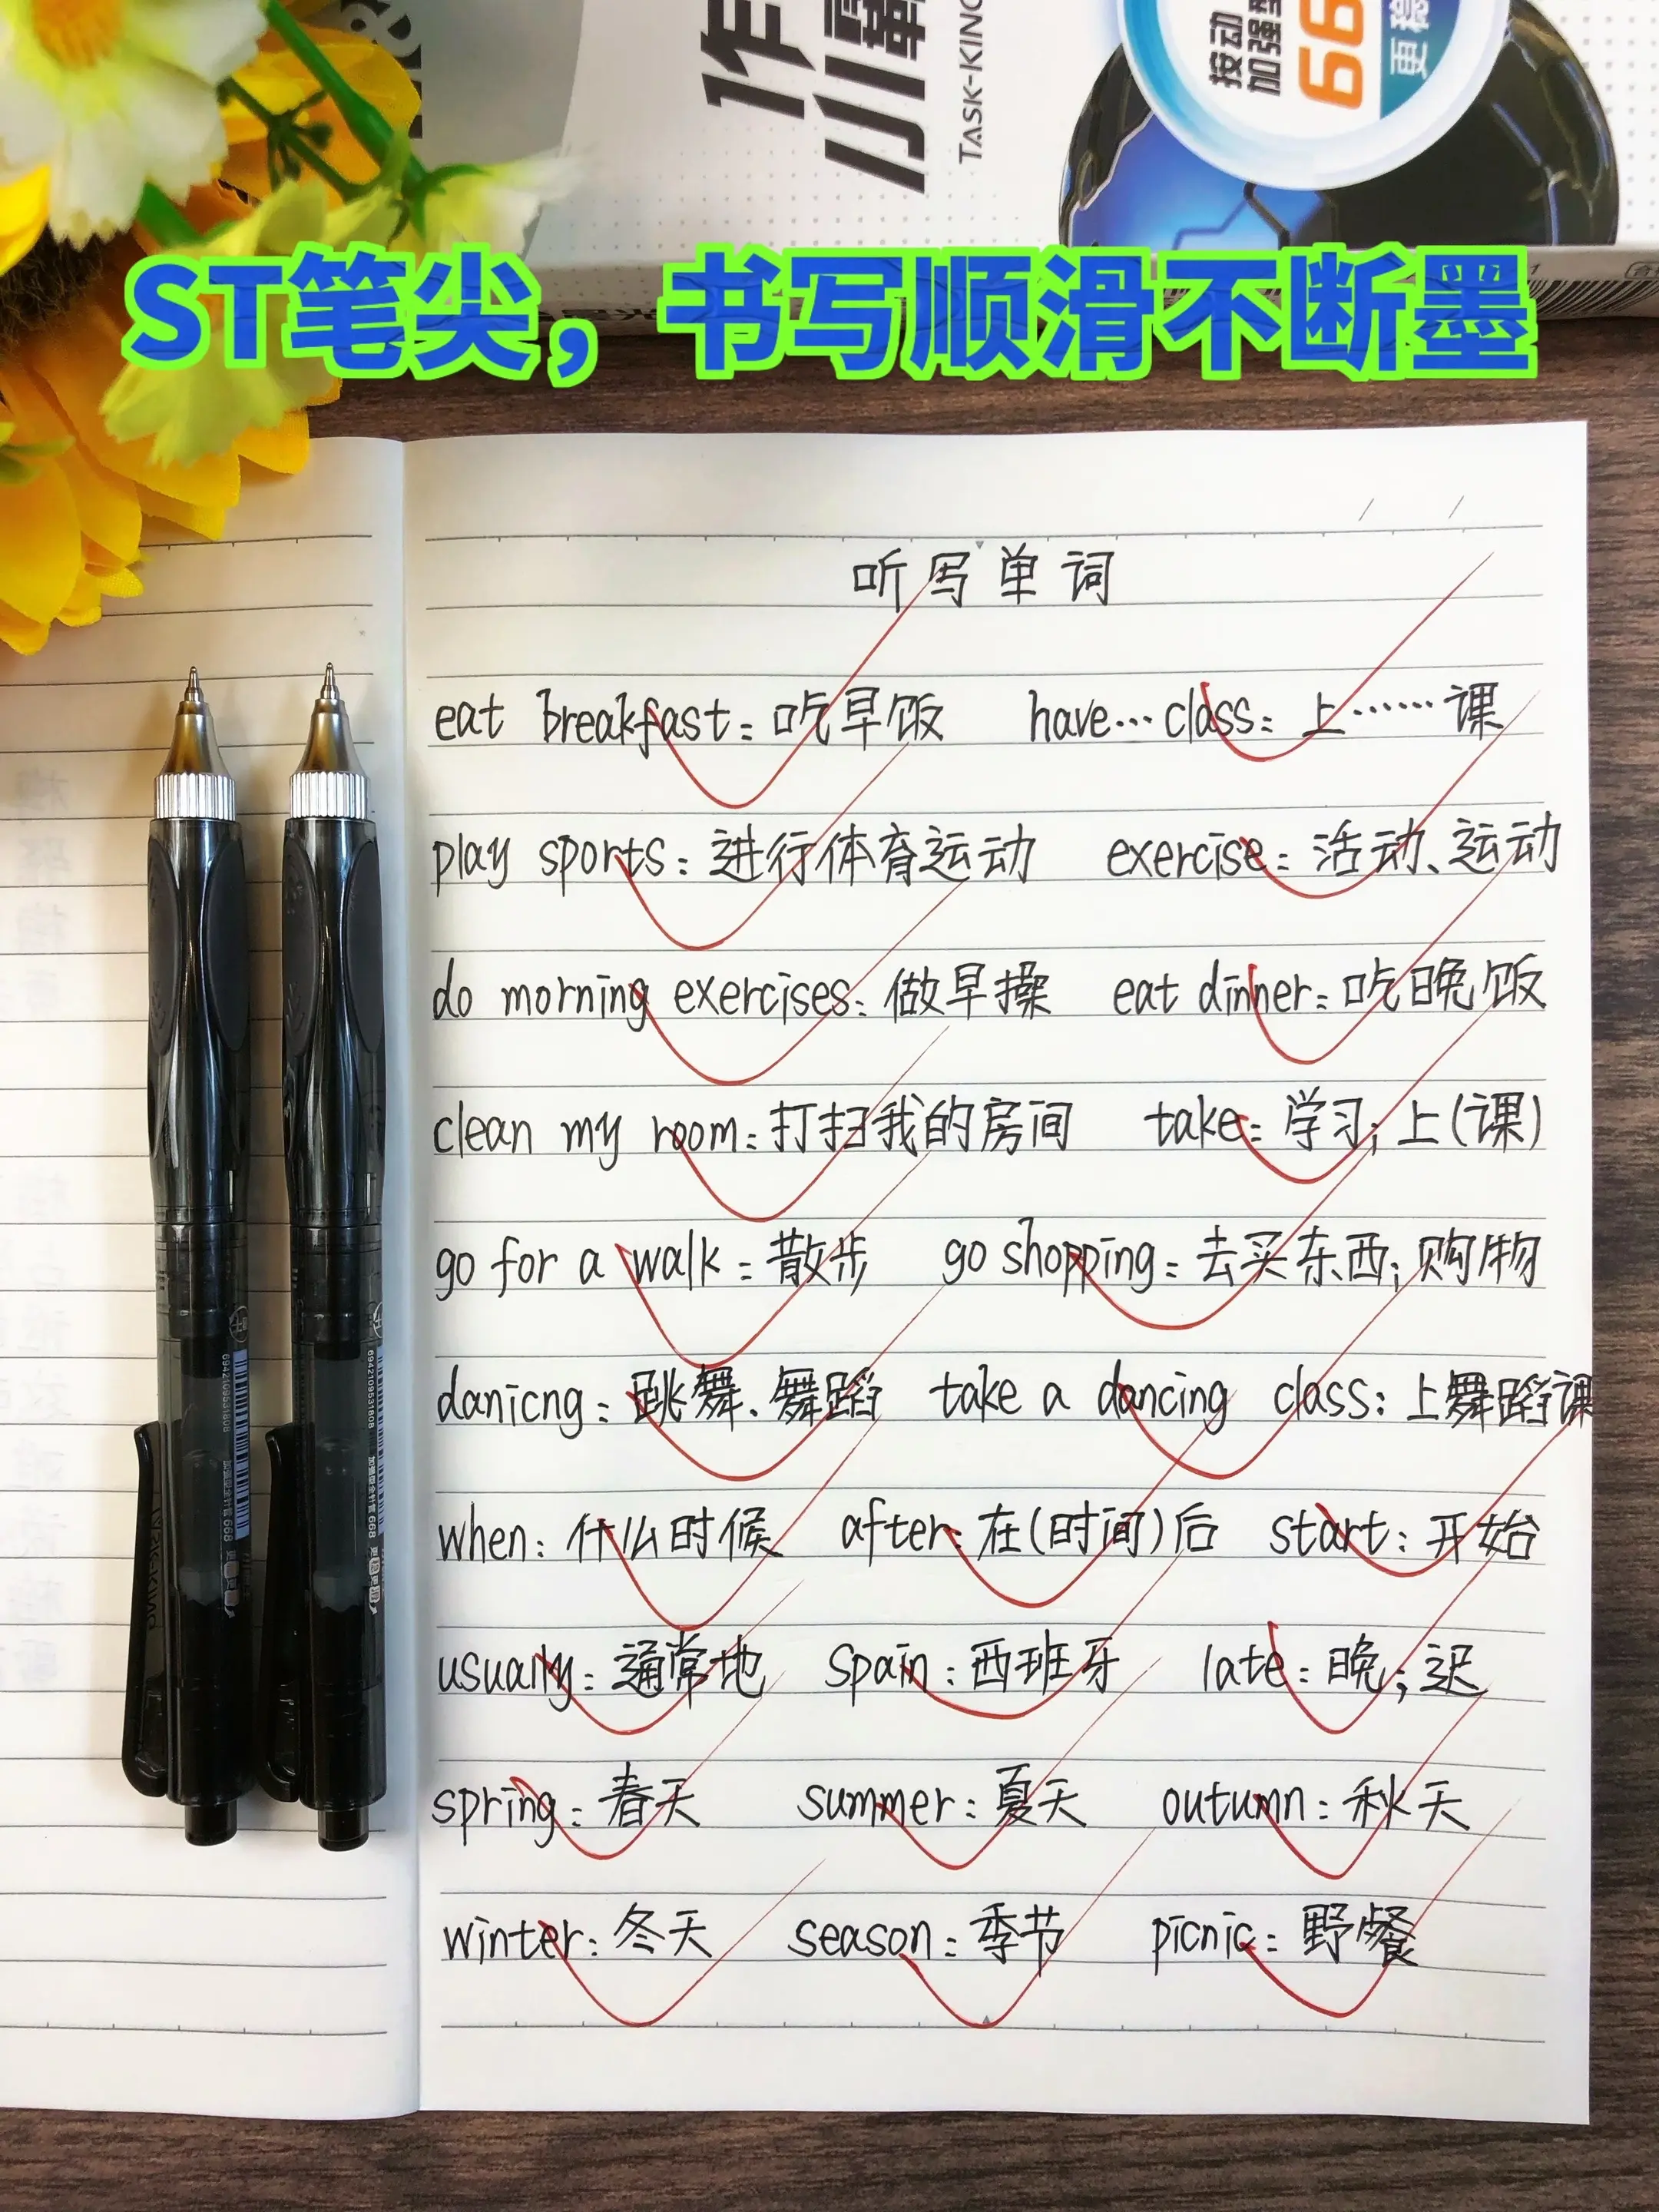 小霸
TASK-KING
按动
加强型
66
更稳
ST笔尖，书写顺滑不断墨
听写单词
eat breakfast: 吃早饭 have… class: 上……课
play sports: 进行体育运动 exercise: 活动、运动
do morning exercises: 做早操 eat dinner: 吃晚饭
clean my room: 打扫我的房间 take: 学习; 上(课)
go for a walk: 散步 go shopping: 去买东西; 购物
danicng: 跳舞、舞蹈 take a dancing class: 上舞蹈课
when: 什么时候 after: 在(时间)后 start: 开始
usually: 通常地 Spain: 西班牙 late: 晚; 迟
spring: 春天 summer: 夏天 outumn: 秋天
winter: 冬天 season: 季节 picnic: 野餐
6942109531808 加强型全针管 668
6942109531808 加强型全针管 668